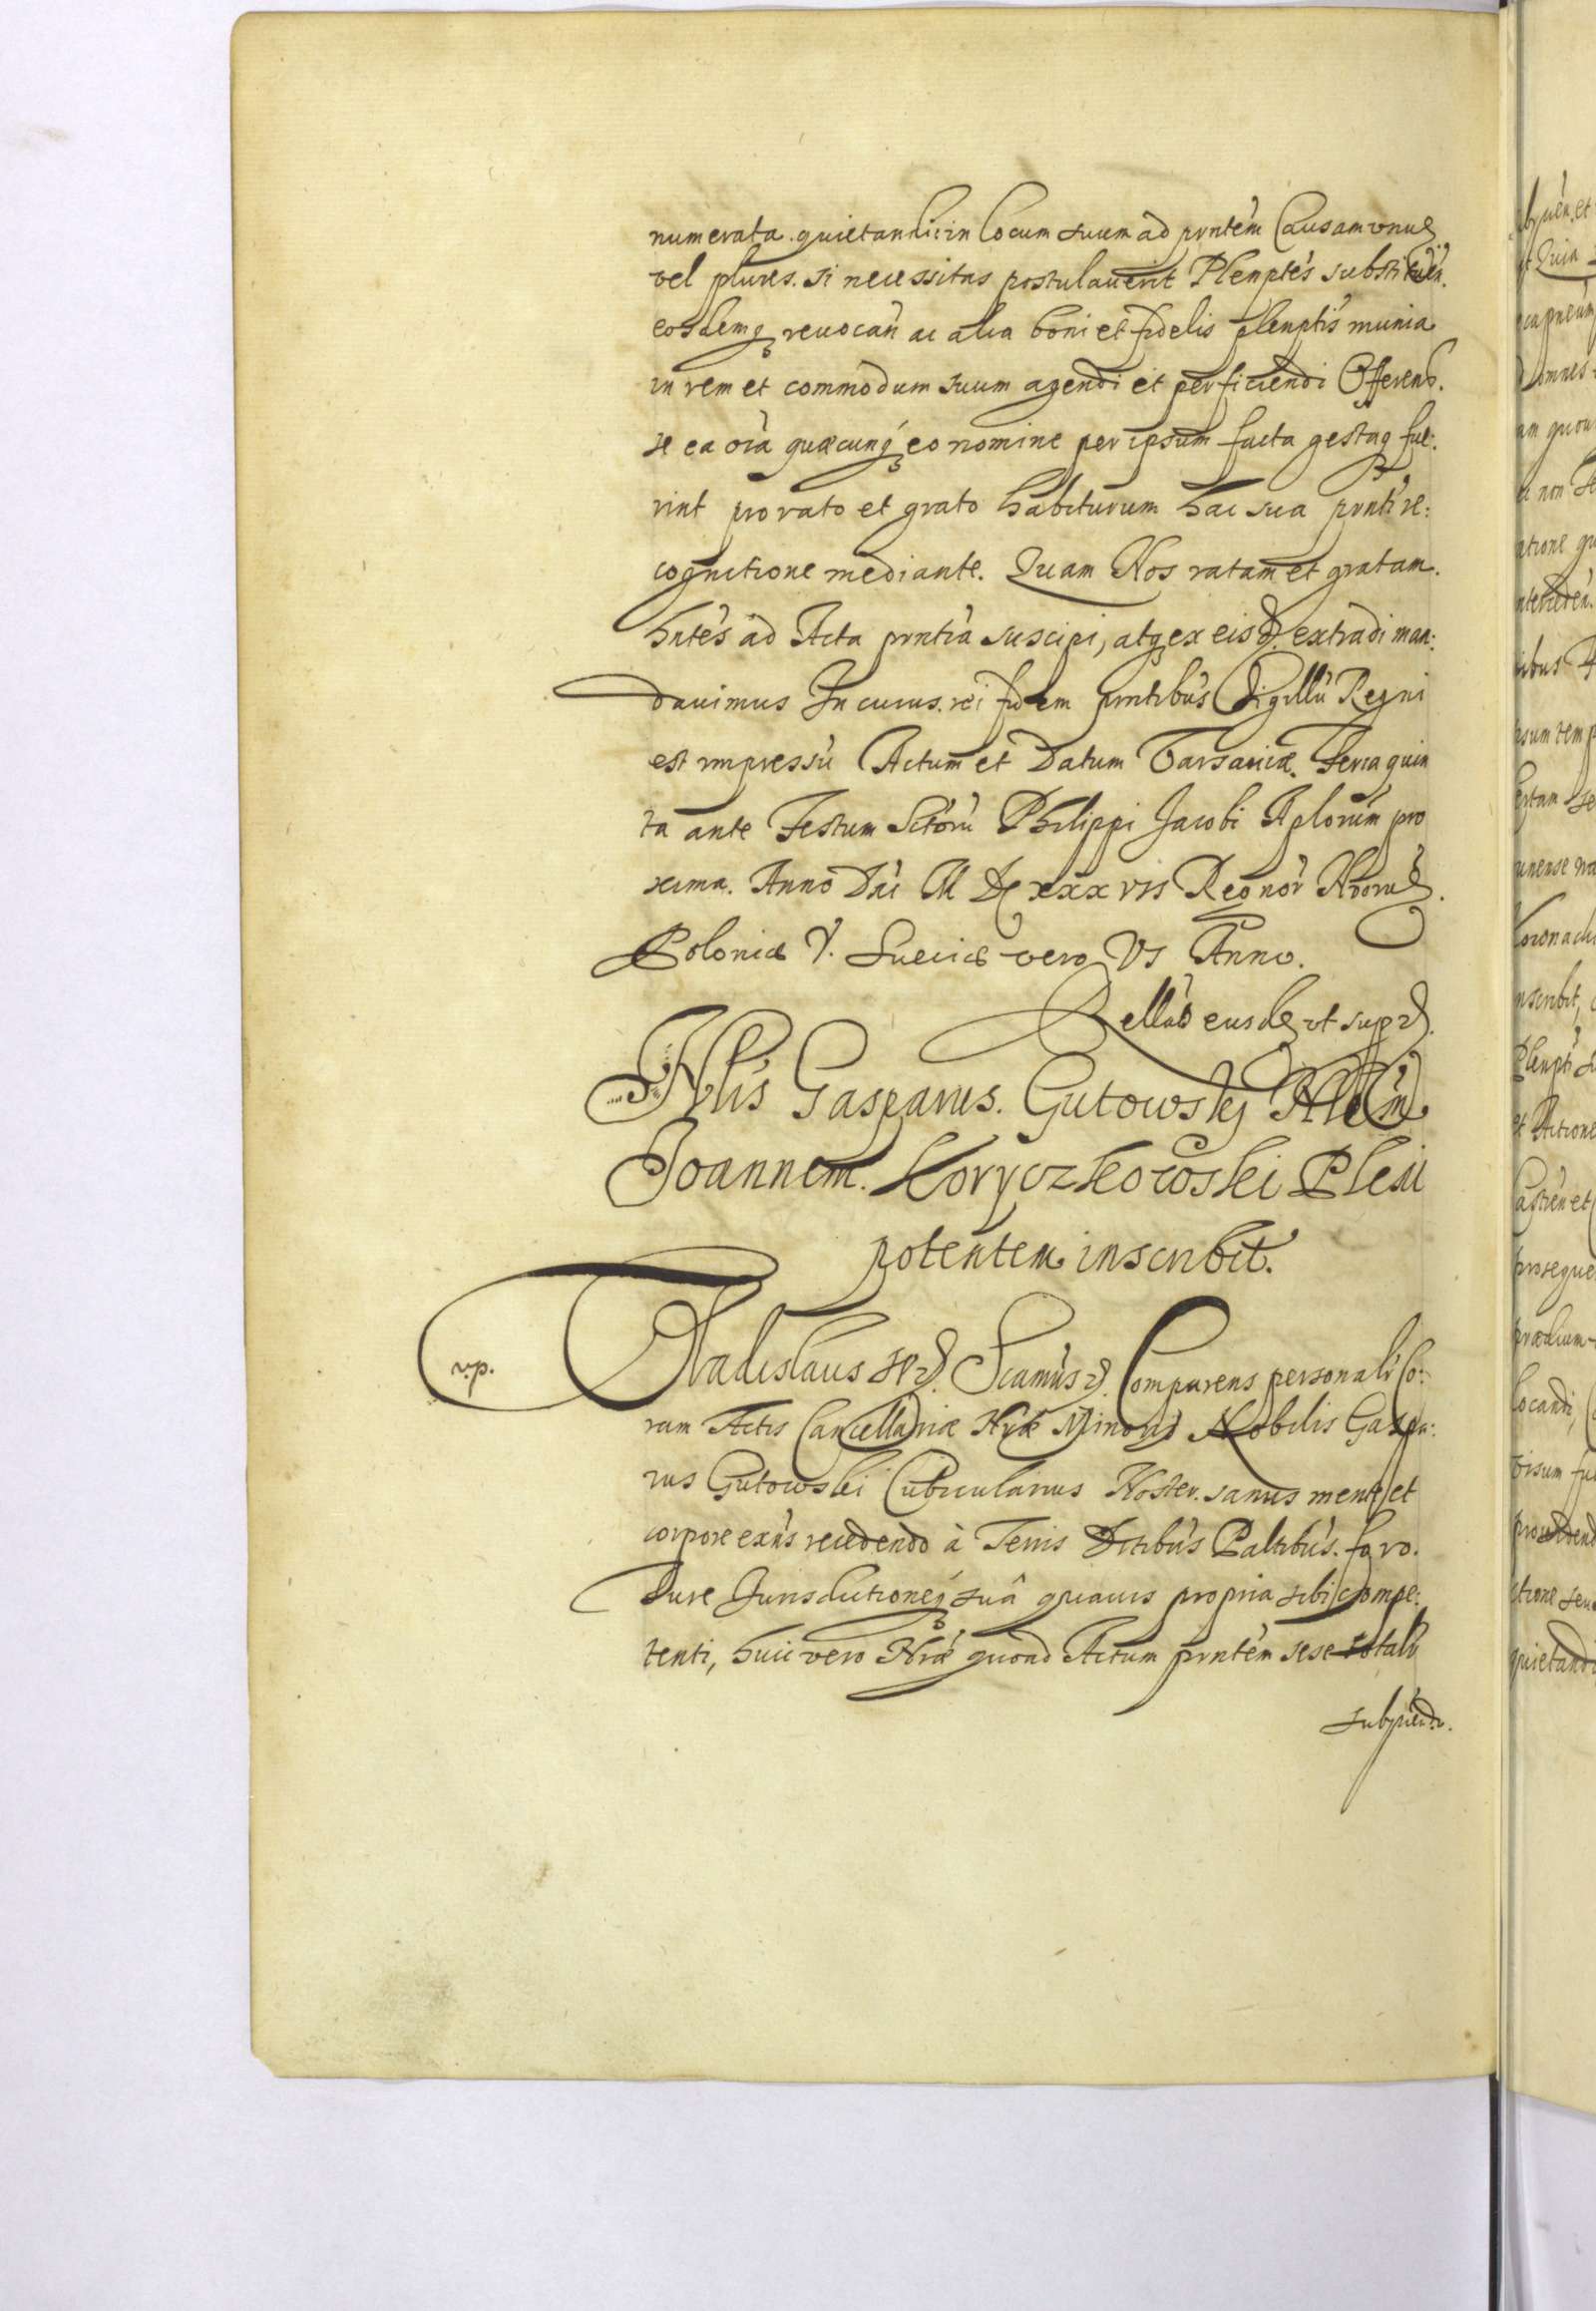 numerata. quietandi: in locum suum ad prntem Causam unum
vel plures. si necessitas postulaverit Plenptes substituen.
eosdemq; revocan ac alia boni et fidelis plenptis munia
in rem et commodum suum agendi et perficiendi Offerens.
se ea oia quæcunq; eo nomine per ipsum facta gestaq; fue:
rint pro rato et grato habiturum hac sua prnti re:
cognitione mediante. Quam Nos ratam et gratam.
hntes ad Acta prntia suscipi, atq; ex eisd. extradi man:
davimus In cuius. rei fidem prntibus Sigillu Regni
est impressu Actum et Datum Varsaviæ. Feria quin
ta ante Festum Sctoru Philippi Jacobi Aplorum pro
xima. Anno Dni M DC xxx vii Regnor Nrorum.
Poloniæ V. Sueciæ vero VI Anno.
Rellao eiusde ut supra.
Nblis Gasparus. Gutowsky Nblem
Joannem. Koryczkowski Plen
potentem inscribit.
v.p.
Vladislaus IV. Scamus. Comparens personalr Co:
ram Actis Cancellariæ Nræ Minoris Nobilis Gaspa:
rus Gutowski Cubicularius Noster. sanus mente et
corpore exns recedendo à Terris Dctibus Paltibus. foro.
Iure Jurisdictioneq; suâ quavis propria sibi compe:
tenti, huic vero Nræ quoad Actum prntem sese totalr
subyciedo.